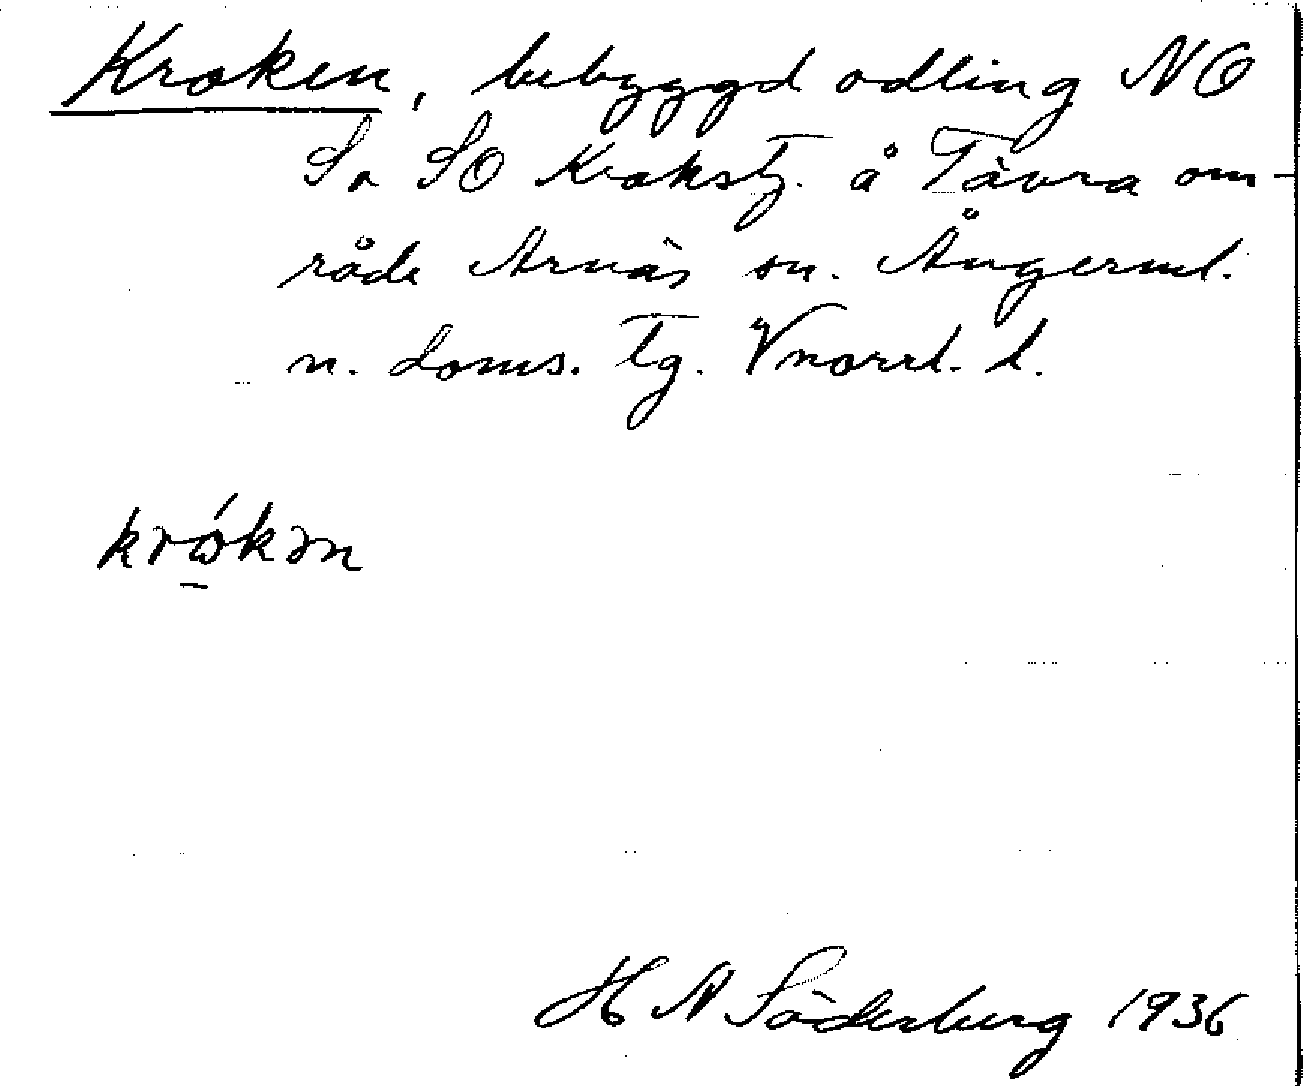 Kroken, bebyggd odling NO
Sa SO Krokstj. å Tävra om-
råde Arnäs sn. Ångerml.
n. doms. Tg. Vnorrl. l.
krωkən
H N Söderberg 1936